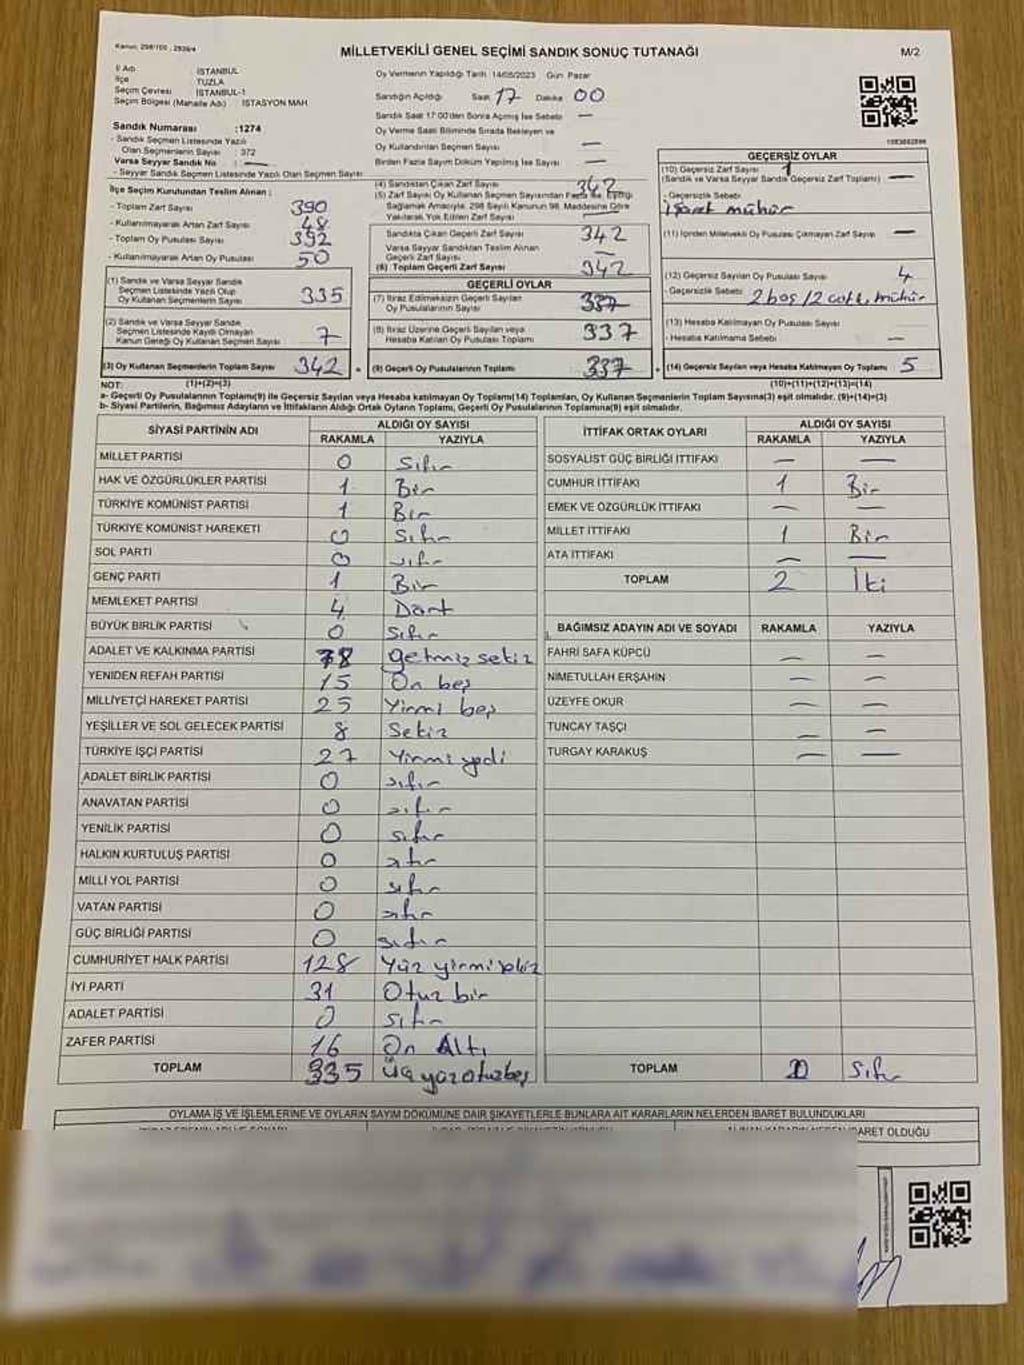 Kanun: 298/100 , 2839/4
MİLLETVEKİLİ GENEL SEÇİMİ SANDIK SONUÇ TUTANAĞI
M/2
İl Adı İSTANBUL
İlçe TUZLA
Seçim Çevresi İSTANBUL-1
Seçim Bölgesi (Mahalle Adı) İSTASYON MAH
Sandık Numarası :1274
- Sandık Seçmen Listesinde Yazılı
Olan Seçmenlerin Sayısı : 372
Varsa Seyyar Sandık No : —
- Seyyar Seçmen Listesinde Yazılı Olan Seçmen Sayısı
Oy Vermenin Yapıldığı Tarih 14/05/2023 Gün Pazar
Sandığın Açıldığı Saat 17 Dakika 00
Sandık Saat 17:00'den Sonra Açılmış İse Sebebi —
Oy Verme Saati Bitiminde Sırada Bekleyen ve
Oy Kullandırılan Seçmen Sayısı —
Birden Fazla Sayım Döküm Yapılmış İse Sayısı —
İlçe Seçim Kurulundan Teslim Alınan :
- Toplam Zarf Sayısı 390
- Kullanılmayarak Artan Zarf Sayısı 48
- Toplam Oy Pusulası Sayısı 392
- Kullanılmayarak Artan Oy Pusulası 50
(1) Sandık ve Varsa Seyyar Sandık
Seçmen Listesinde Yazılı Olup
Oy Kullanan Seçmenlerin Sayısı 335
(2) Sandık ve Varsa Seyyar Sandık
Seçmen Listesinde Kayıtlı Olmayan
Kanun Gereği Oy Kullanan Seçmen Sayısı 7
(3) Oy Kullanan Seçmenlerin Toplam Sayısı 342
(1)+(2)=(3)
(4) Sandıktan Çıkan Zarf Sayısı 342
(5) Zarf Sayısı Oy Kullanan Seçmen Sayısından Fazla ise, Eşitliği
Sağlamak Amacıyla, 298 Sayılı Kanunun 98. Maddesine Göre
Yakılarak Yok Edilen Zarf Sayısı —
Sandıkta Çıkan Geçerli Zarf Sayısı 342
Varsa Seyyar Sandıktan Teslim Alınan
Geçerli Zarf Sayısı —
(6) Toplam Geçerli Zarf Sayısı 342
GEÇERLİ OYLAR
(7) İtiraz Edilmeksizin Geçerli Sayılan
Oy Pusulalarının Sayısı 337
(8) İtiraz Üzerine Geçerli Sayılan veya
Hesaba Katılan Oy Pusulası Toplamı 337
(9) Geçerli Oy Pusulalarının Toplamı 337
GEÇERSİZ OYLAR
(10) Geçersiz Zarf Sayısı 1
(Sandık ve Varsa Seyyar Sandık Geçersiz Zarf Toplamı) —
- Geçersizlik Sebebi
işaret mühür
(11) İçinden Milletvekili Oy Pusulası Çıkmayan Zarf Sayısı —
(12) Geçersiz Sayılan Oy Pusulası Sayısı 4
- Geçersizlik Sebebi 2 boş / 2 mühür
(13) Hesaba Katılmayan Oy Pusulası Sayısı
- Hesaba Katılmama Sebebi —
(14) Geçersiz Sayılan veya Hesaba Katılmayan Oy Toplamı 5
(10)+(11)+(12)+(13)=(14)
NOT:
a- Geçerli Oy Pusulalarının Toplamı(9) ile Geçersiz Sayılan veya Hesaba katılmayan Oy Toplamı(14) Toplamları, Oy Kullanan Seçmenlerin Toplam Sayısına(3) eşit olmalıdır. (9)+(14)=(3)
b- Siyasi Partilerin, Bağımsız Adayların ve İttifakların Aldığı Ortak Oyların Toplamı, Geçerli Oy Pusulalarının Toplamına(9) eşit olmalıdır.
SİYASİ PARTİNİN ADI ALDIĞI OY SAYISI
RAKAMLA YAZIYLA
MİLLET PARTİSİ 0 Sıfır
HAK VE ÖZGÜRLÜKLER PARTİSİ 1 Bir
TÜRKİYE KOMÜNİST PARTİSİ 1 Bir
TÜRKİYE KOMÜNİST HAREKETİ 0 Sıfır
SOL PARTİ 0 sıfır
GENÇ PARTİ 1 Bir
MEMLEKET PARTİSİ 4 Dört
BÜYÜK BİRLİK PARTİSİ 0 Sıfır
ADALET VE KALKINMA PARTİSİ 78 yetmiş sekiz
YENİDEN REFAH PARTİSİ 15 On beş
MİLLİYETÇİ HAREKET PARTİSİ 25 Yirmi beş
YEŞİLLER VE SOL GELECEK PARTİSİ 8 Sekiz
TÜRKİYE İŞÇİ PARTİSİ 27 Yirmi yedi
ADALET BİRLİK PARTİSİ 0 sıfır
ANAVATAN PARTİSİ 0 sıfır
YENİLİK PARTİSİ 0 sıfır
HALKIN KURTULUŞ PARTİSİ 0 sıfır
MİLLİ YOL PARTİSİ 0 sıfır
VATAN PARTİSİ 0 sıfır
GÜÇ BİRLİĞİ PARTİSİ 0 sıfır
CUMHURİYET HALK PARTİSİ 128 Yüz yirmi sekiz
İYİ PARTİ 31 Otuz bir
ADALET PARTİSİ 0 sıfır
ZAFER PARTİSİ 16 On Altı
TOPLAM 335 Üç yüz otuz beş
İTTİFAK ORTAK OYLARI ALDIĞI OY SAYISI
RAKAMLA YAZIYLA
SOSYALİST GÜÇ BİRLİĞİ İTTİFAKI — —
CUMHUR İTTİFAKI 1 Bir
EMEK VE ÖZGÜRLÜK İTTİFAKI — —
MİLLET İTTİFAKI 1 Bir
ATA İTTİFAKI — —
TOPLAM 2 İki
BAĞIMSIZ ADAYIN ADI VE SOYADI RAKAMLA YAZIYLA
FAHRİ SAFA KÜPCÜ — —
NİMETULLAH ERŞAHİN — —
ÜZEYFE OKUR — —
TUNCAY TAŞÇI — —
TURGAY KARAKUŞ — —
TOPLAM 0 Sıfır
OYLAMA İŞ VE İŞLEMLERİNE VE OYLARIN SAYIM DÖKÜMÜNE DAİR ŞİKAYETLERLE BUNLARA AİT KARARLARIN NELERDEN İBARET BULUNDUKLARI
İBARET OLDUĞU